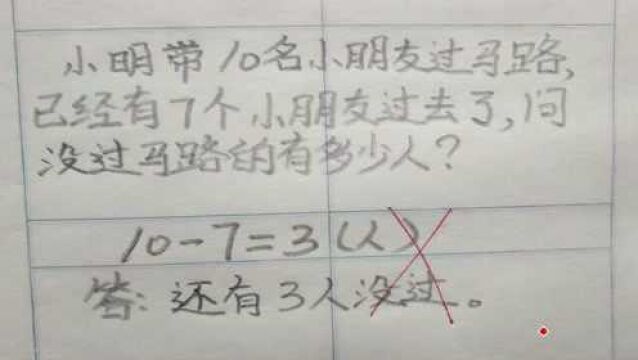 小明带10名小朋友过马路,
已经有7个小朋友过去了,问
没过马路的有多少人?
10-7=3(人)
答:还有3人没过。